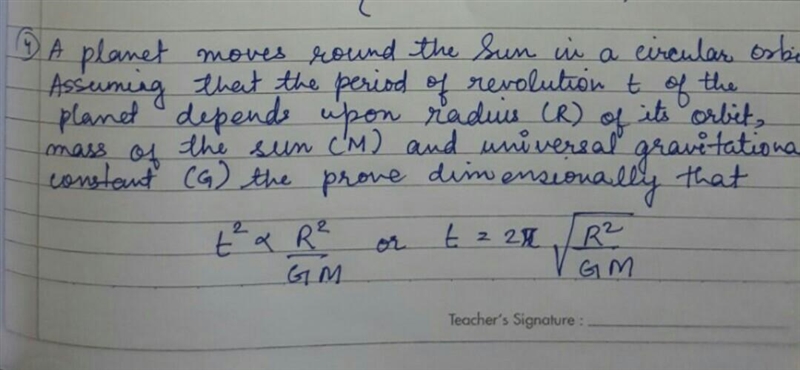 4) A planet moves round the Sun in a circular orbi
Assuming that the period of revolution t of the
planet depends upon radius (R) of its orbit,
mass of the sun (M) and universal gravitationa
constant (G) the prove dimensionally that
t² ∝ R²/GM or t = 2π √(R²/GM)
Teacher's Signature :